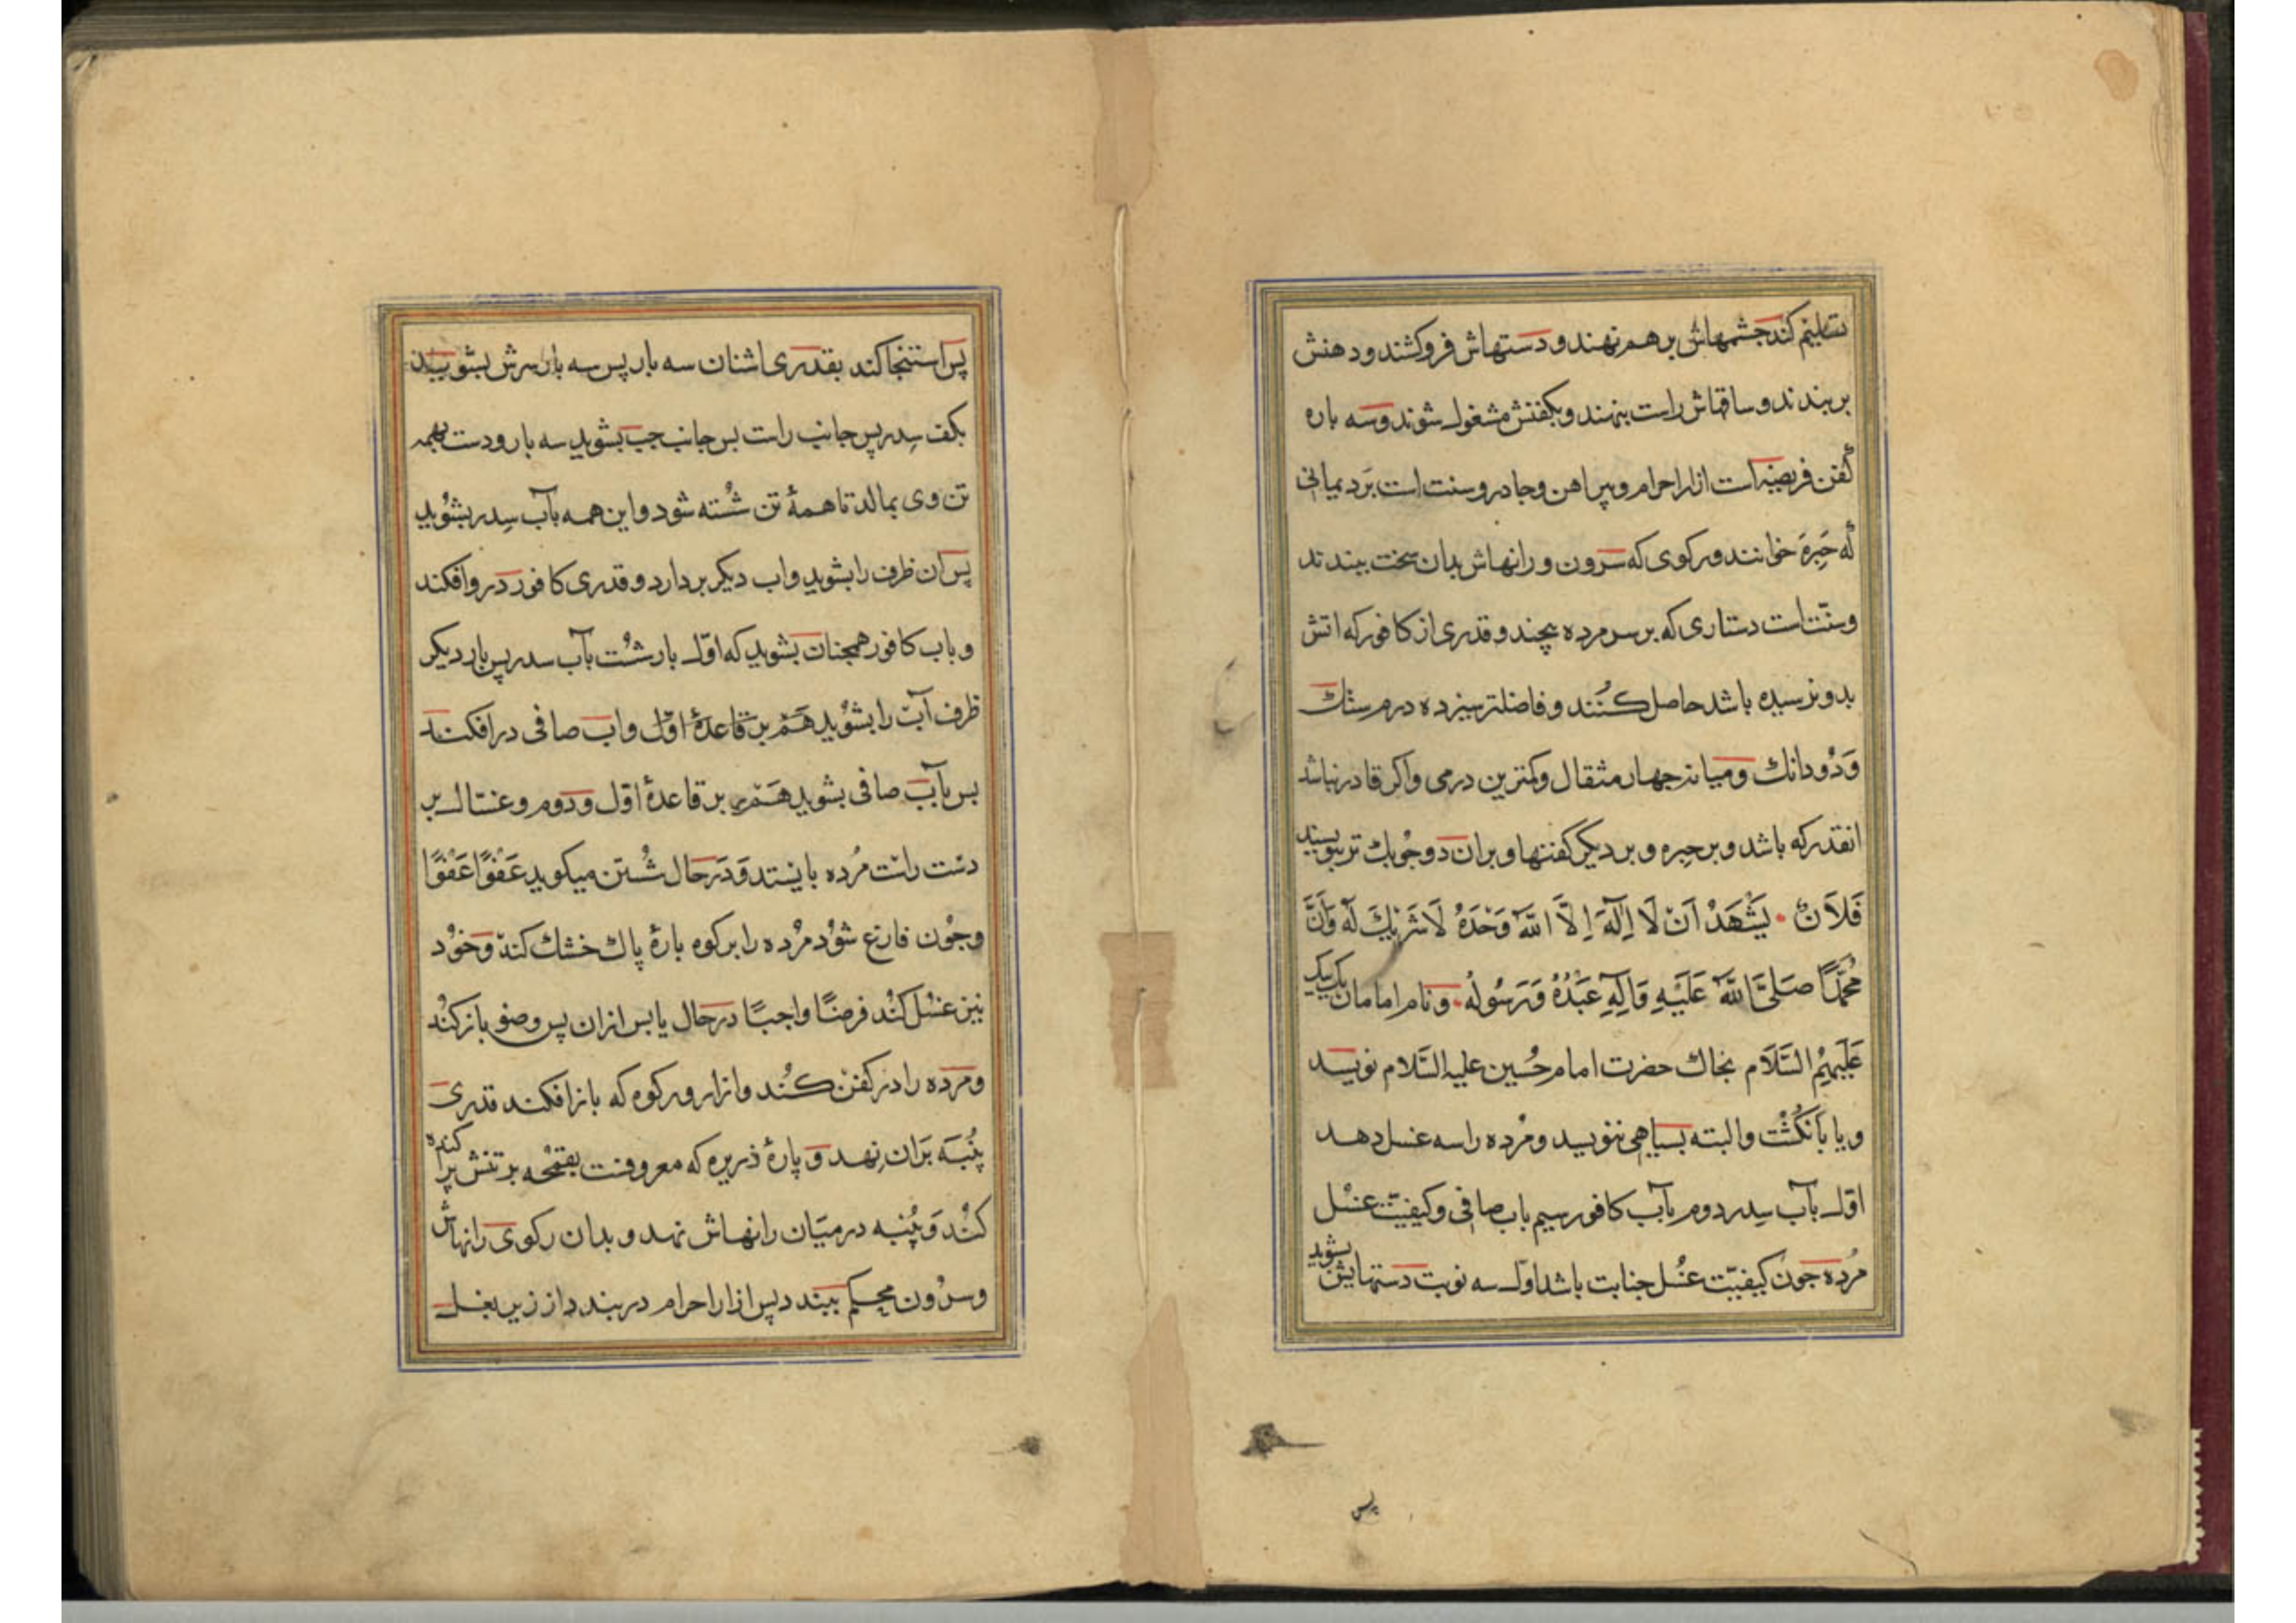 تسلیم کند جشمهاش بر هم نهند و دستهاش فروکشند و دهنش
بر بندند و ساقهاش راست بنهند و بکفنش مشغول شوند و سه باره
کفن فریضه است ازار احرام و پیراهن و جادر و سنت است بَرد یمانی
که حَبِرَه خوانند و رکوی که سَرون و رانهاش بدان سخت ببندند
و سنّت است دستاری که بر سر مرده پیچند و قدری از کافور که اتش
بدو نرسیده باشد حاصل کُنند و فاضلتر سیزده درم سنك
وَ دُو دانك و میانه جهار مثقال و کمترین درمی و اکر قادر نباشد
انقدر که باشد و بر حبره و بر دیکر کفنها و بران دو جُوبك تر بنویسند
فَلاَنٌ • یَشْهَدُ اَنْ لَا اِلَهَ اِلَّا اللّهُ وَحْدَهُ لَا شَرِیْكَ لَهُ وَاَنَّ
مُحَمَّدًا صَلَیَّ اللَّهُ عَلَیْهِ وَ اَلِهِ عَبْدُهُ وَ رَسُولُهُ • و نام امامان یک یک
عَلَیْهِمُ السَّلَام بخاك حضرت امام حُسین علیه السَّلام نویسد
و یا بَانکُشْت و البته بسیاهی ننویسد و مُرده را سه غسل دهد
اوّل بآب سِدر دوم بآب کافور سیم باب صافی و کیفیّت غسْل
مُرده جون کیفیّت غسُل جنابت باشد اوّل سه نوبت دستهایش بشوید
پس
پس استنجا کند بقدری اشنان سه بار پس سه بار سرش بشویند
بکف سِدر پس جانب راست بس جانب جب بشوید سه بار و دست بهمه
تن وی بمالد تا همهٔ تن شُسته شود و این همه بآب سِدر بشُوید
پس ان ظرف را بشوید و اب دیکر بردارد و قدری کافور در و افکند
و باب کافور همجنان بشوید که اوّل بار شُست بآب سدر پس بار دیکر
ظرف آب را بشُوید هَمْ بر قاعدهٔ اوّل و اب صافی در افکند
بس بآب صافی بشوید هَمْ بر قاعدهٔ اوّل و دوم و غسّال بر
دست راست مُرده بایستد وَ دَر حال شُستن میکوید عَفْوًا عَفْوًا
و جُون فارغ شوْد مُرده را برکوه بارهٔ پاك خشك کند وَ خوُد
نیز غسْل کنُد فرضًا واجبًا در حال یا بس ازان پس وضو باز کنُد
و مرده را در کفن کُند و ازار و رکوه که باز افکند قدری
پُنْبَه بَران نِهد وَ پارهٔ ذریره که معروفست بقتّحه بر تنش پراکنده
کنُد وَ پُنبه در میَان رانهاش نهد و بدان رکوی رانهاش
و سرُون محکم ببندد پس ازار احرام در بندد از زیر بغل